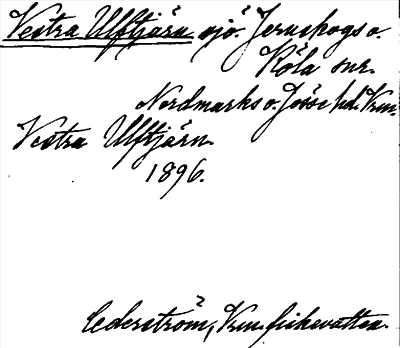 Vestra Ulftjärn sjö. Jernskogs o.
Köla snr.
Nordmarks o. Jösse hd. Vrm.
Vestra Ulftjärn.
1896.
Cederström, Vrm. fiskevatten.